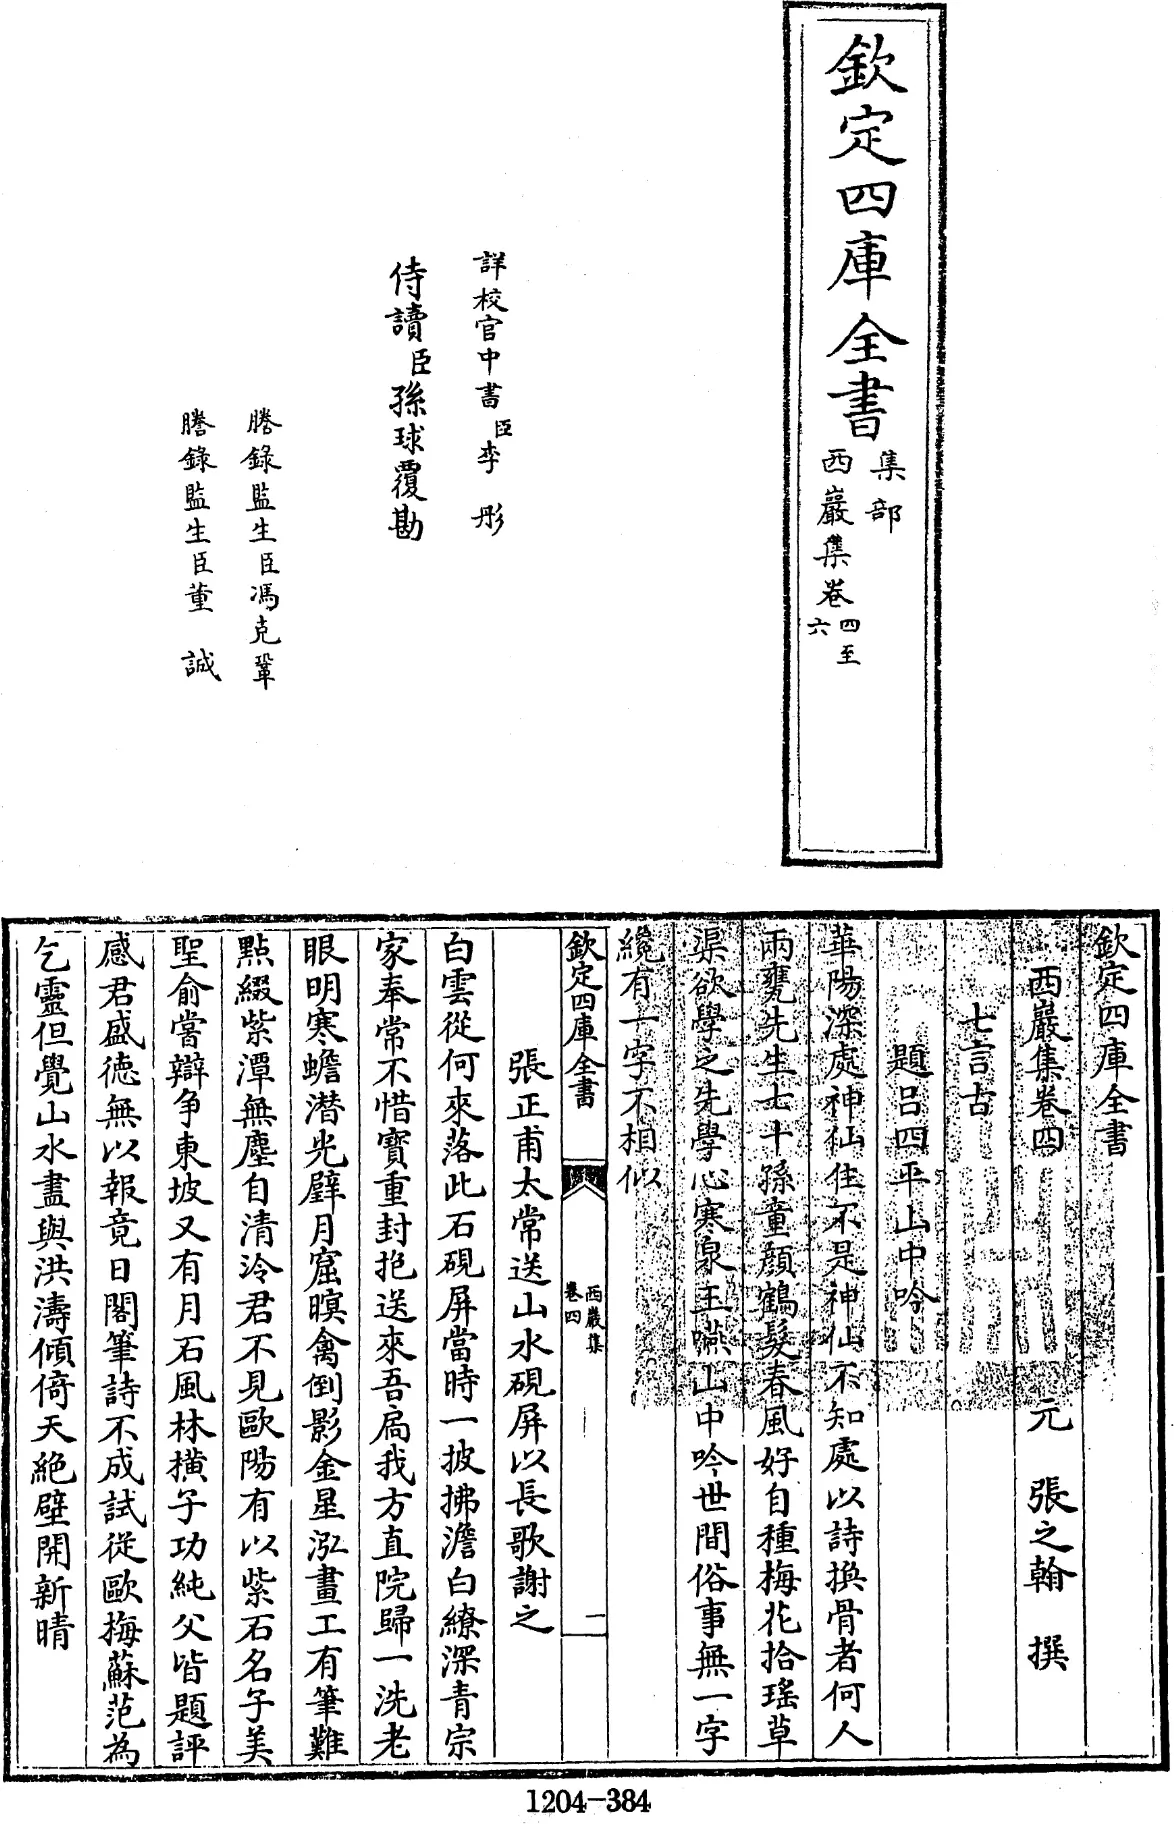 欽定四庫全書
集部
西巖集卷四至六
詳校官中書臣李彤
侍讀臣孫球覆勘
謄錄監生臣馮克鞏
謄錄監生臣董誠
欽定四庫全書
西巖集卷四
元 張之翰 撰
七言古
題呂四平山中吟
華陽深處神仙住不是神仙不知處以詩換骨者何人
兩甕先生七十孫童顏鶴髮春風好自種梅花拾瑤草
渠欲學之先學心寒泉玉嚥山中吟世間俗事無一字
纔有一字不相似
欽定四庫全書
西巖集
卷四
一
張正甫太常送山水硯屏以長歌謝之
白雲從何來落此石硯屏當時一披拂澹白繚深青宗
家奉常不惜寶重封抱送來吾扃我方直院歸一洗老
眼明寒蟾潜光辟月窟暝禽倒影金星泓畫工有筆難
點綴紫潭無塵自清泠君不見歐陽有以紫石名子美
聖俞嘗辯爭東坡又有月石風林橫子功純父皆題評
感君盛德無以報竟日閣筆詩不成試從歐梅蘇范為
乞靈但覺山水晝與洪濤傾倚天絶壁開新晴
1204-384